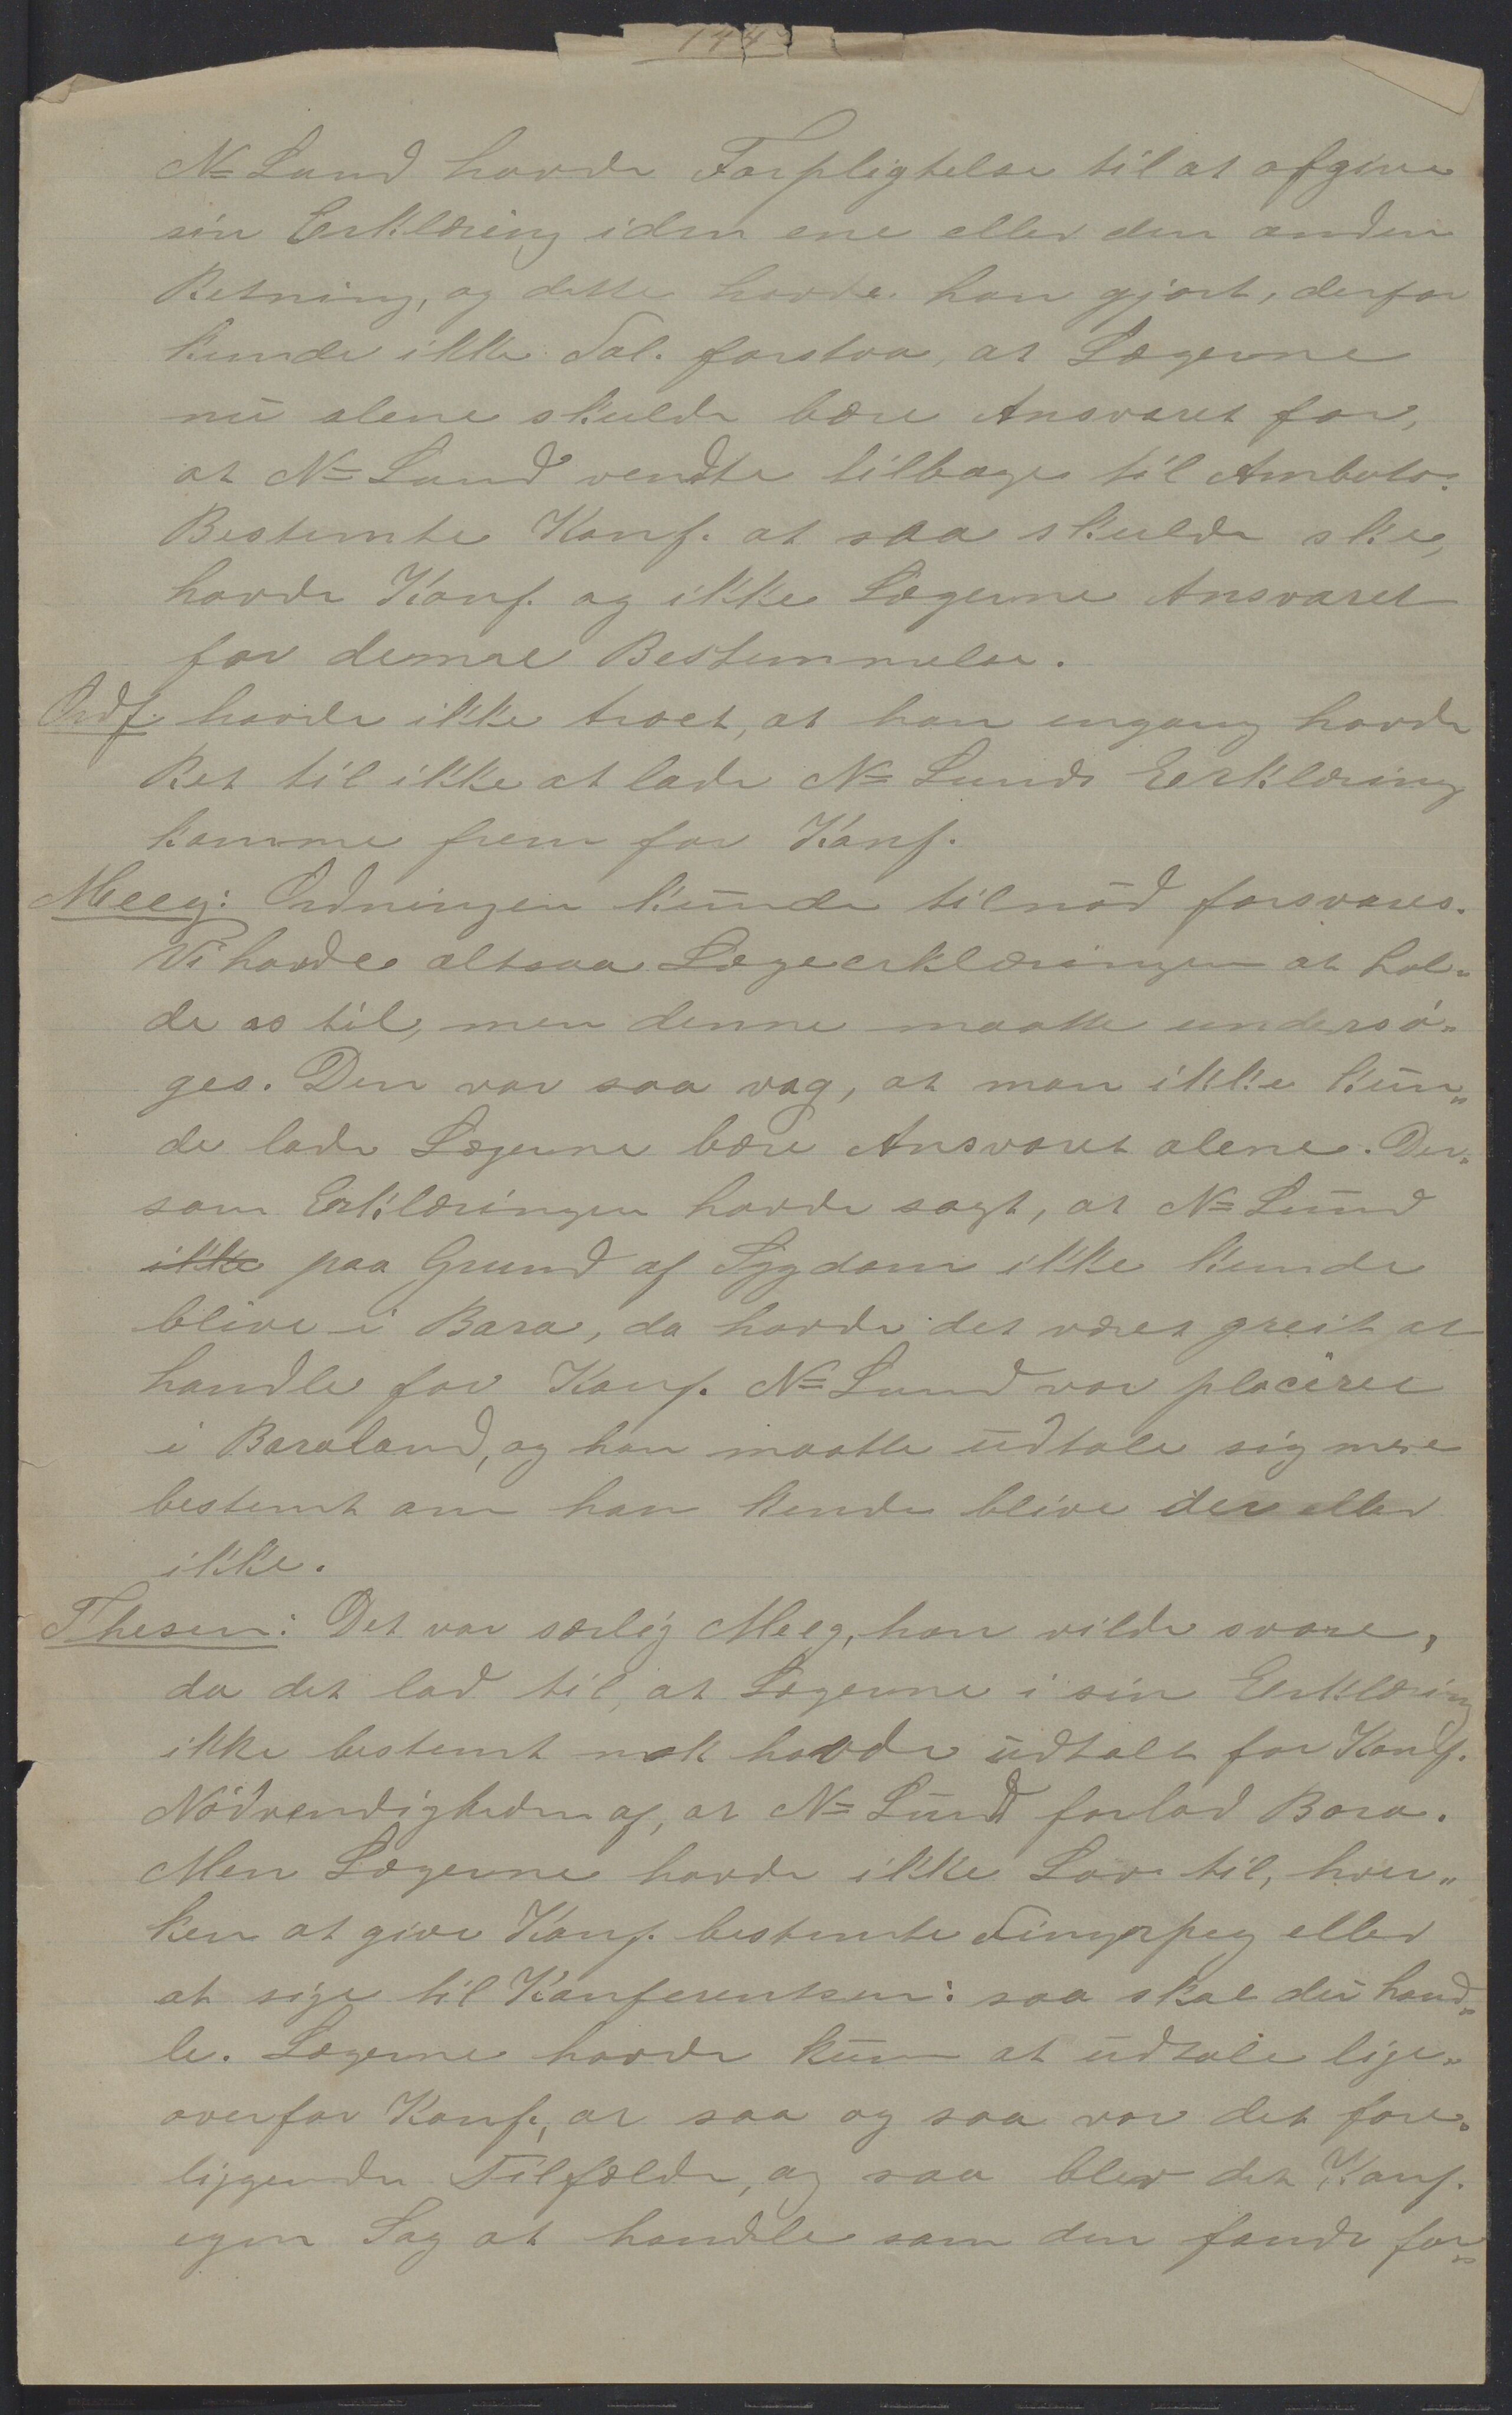 144
N= Lund havde Forpligtelse til at afgive
sin Erklæring i den ene eller den anden
Retning, og dette havde han gjort, derfor
kunde ikke Tal. forstaa, at Lægerne
nu alene skulde bære Ansvaret for,
at N= Lund vendte tilbage til Ambato.
Bestemte Konf. at saa skulde ske,
havde Konf. og ikke Lægerne Ansvaret
for denne Bestemmelse.
Ordf. havde ikke troet, at han engang havde
Ret til ikke at lade N= Lunds Erklæring
komme frem for Konf.
Meeg: Ordningen kunde tilnød forsvares.
Vi havde altsaa Lægeerklæringen at hol-
de os til, men denne maatte undersø-
ges. Den var saa vag, at man ikke kun-
de lade Lægerne bære Ansvaret alene. Der-
som Erklæringen havde sagt, at N= Lund
ikke paa Grund af Sygdom ikke kunde
blive i Bara, da havde det været greit at
handle for Konf. N= Lund var placeret
i Baraland, og han maatte udtale sig mere
bestemt om han kunde blive der eller
ikke.
Thesen: Det var særlig Meeg, han vilde svare,
da det lod til, at Lægerne i sin Erklæring
ikke bestemt nok havde udtalt for Konf.
Nödvendigheden af, at N= Lund forlod Bara.
Men Lægerne havde ikke Lov til, hver-
ken at give Konf. bestemte Fingerpeg eller
at sige til Konferentsen: saa skal du hand-
le. Lægerne havde kun at udtale lige-
overfor Konf., at saa og saa var det fore-
liggende Tilfælde, og saa blev det Konf.
egen Sag at handle som den fandt for-